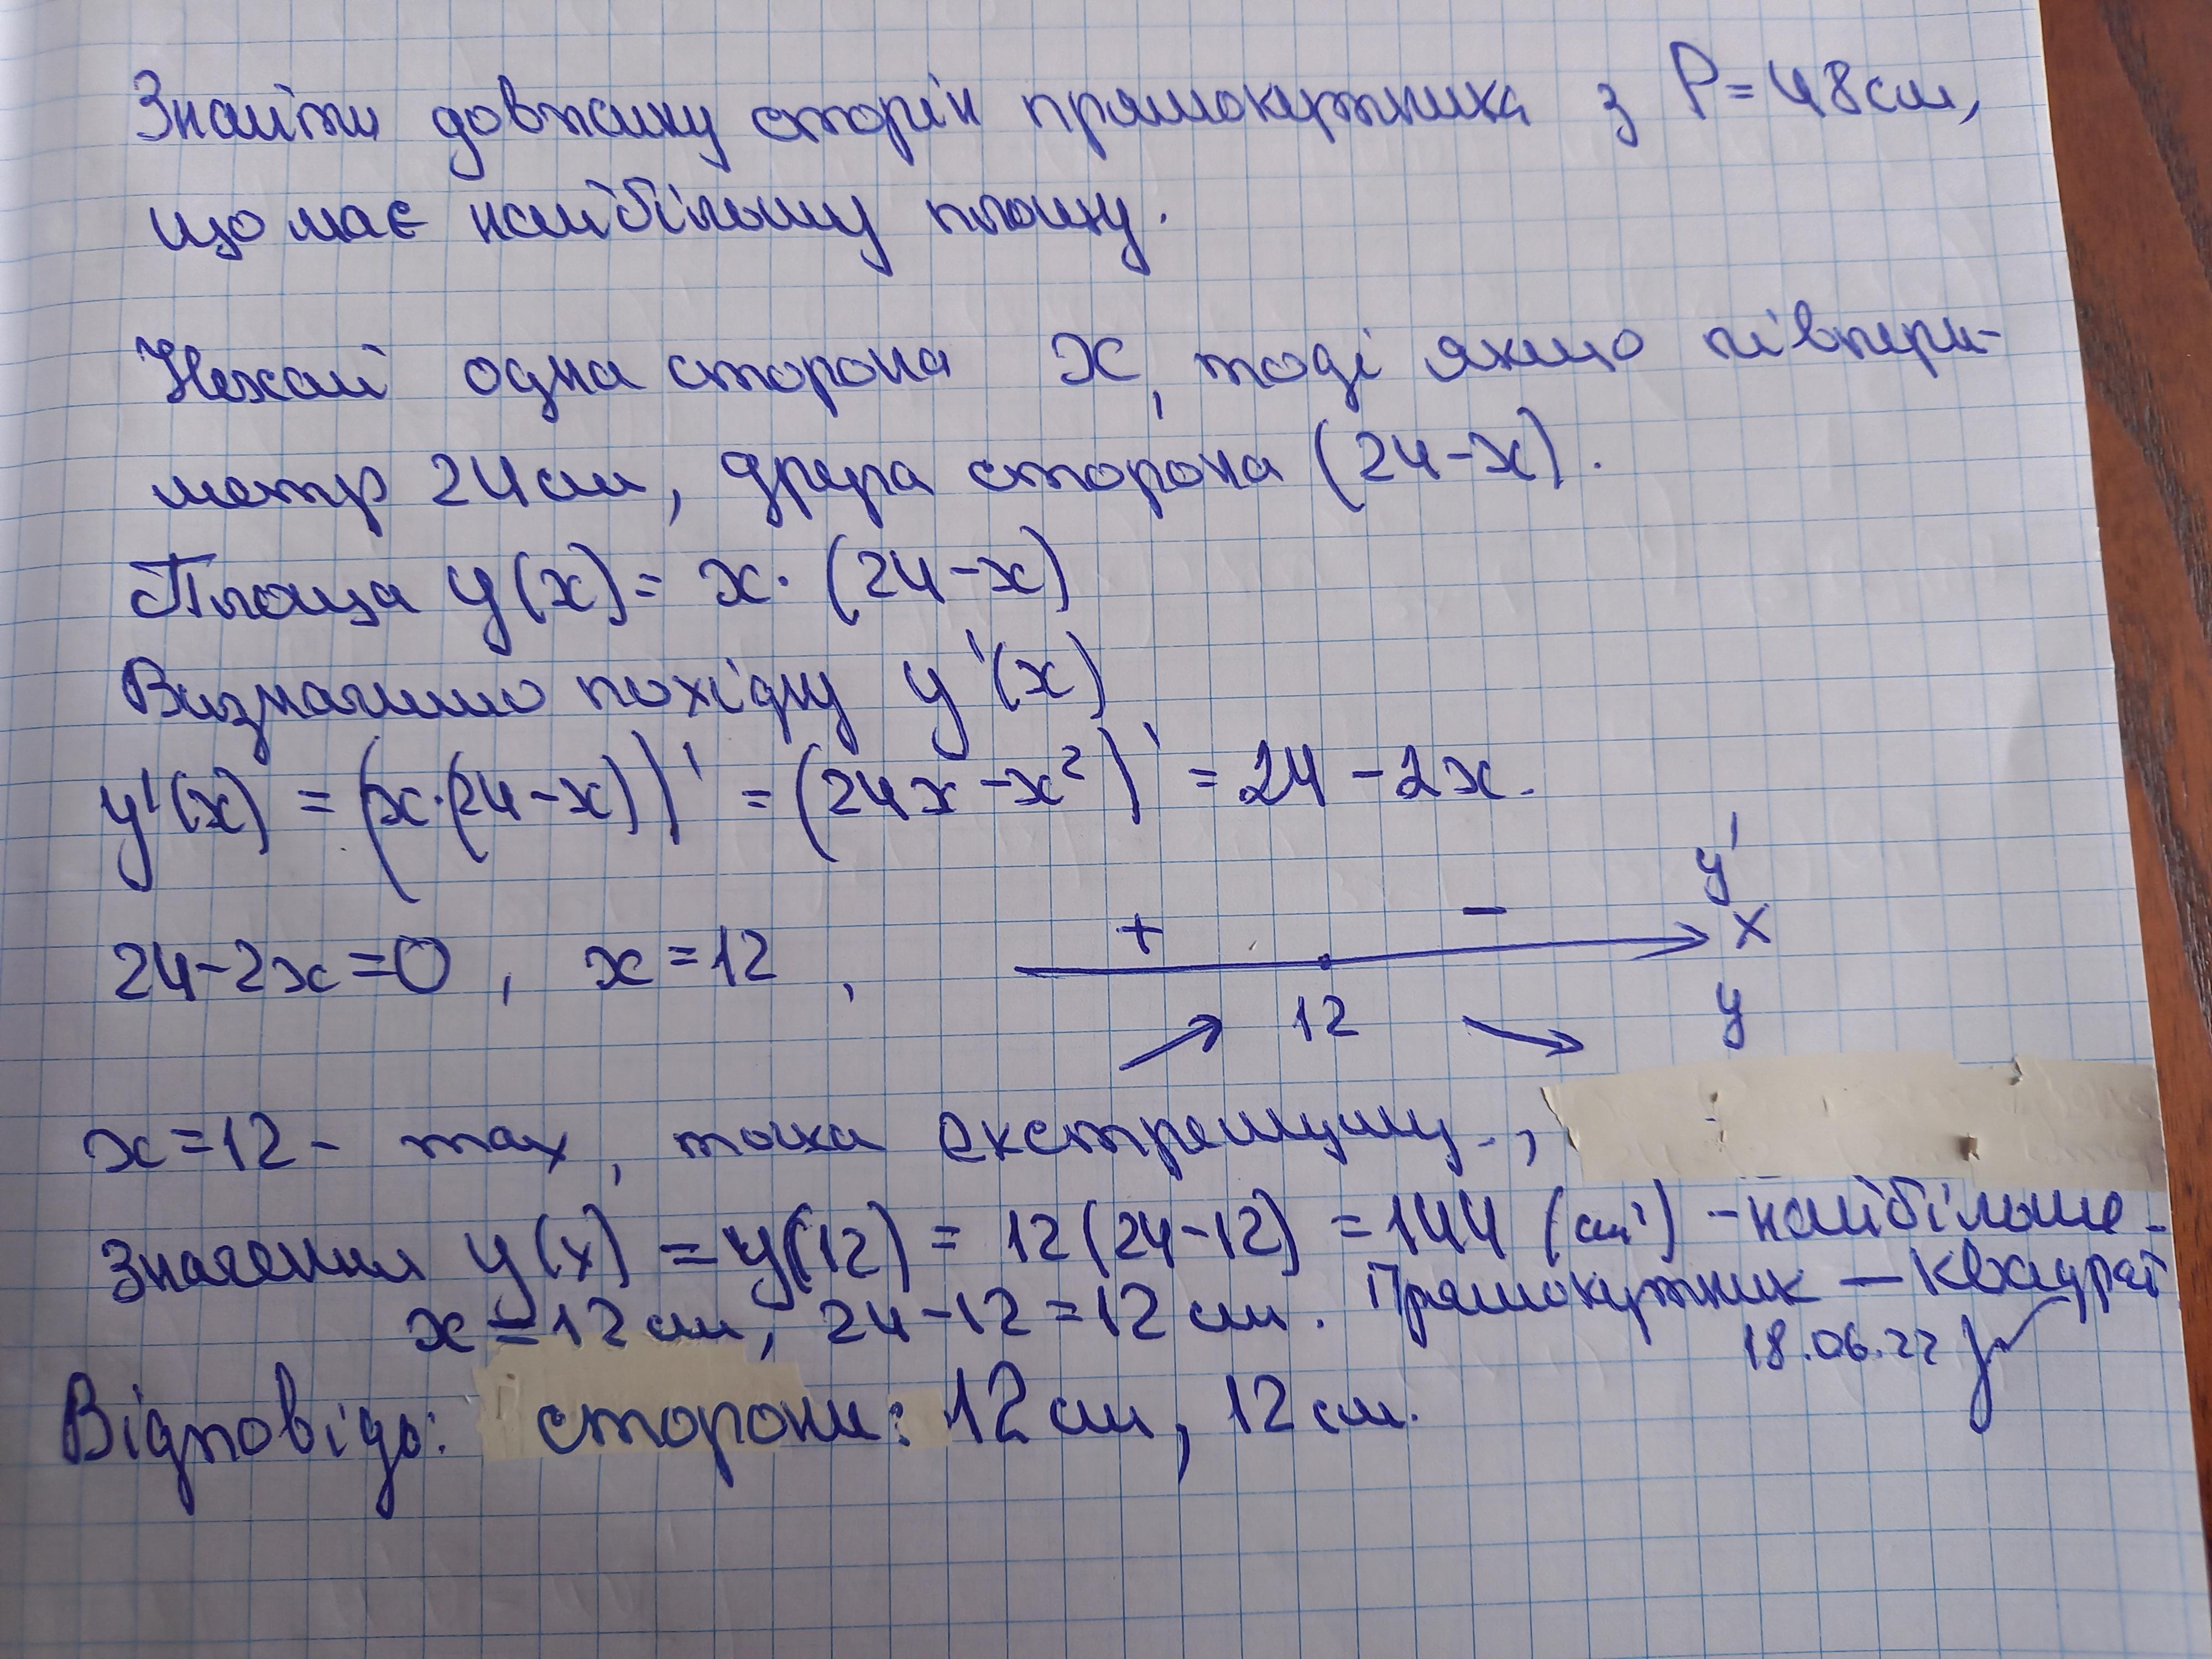 Знайти довжину сторін прямокутника з P=48см,
що має найбільшу площу.
Нехай одна сторона x, тоді якщо півпери-
метр 24см, друга сторона (24-x).
Площа y(x)= x·(24-x)
Визначимо похідну y'(x)
y'(x) = (x·(24-x))' = (24x-x²)' = 24-2x.
y'
24-2x=0, x=12, + - x
12 y
x=12- max, точка екстремуму.,
Значення y(x) = y(12) = 12(24-12) =144 (см²) -найбільше-
x=12см, 24-12=12см. Прямокутник — квадрат
18.06.22
Відповідь: сторони: 12см, 12см.